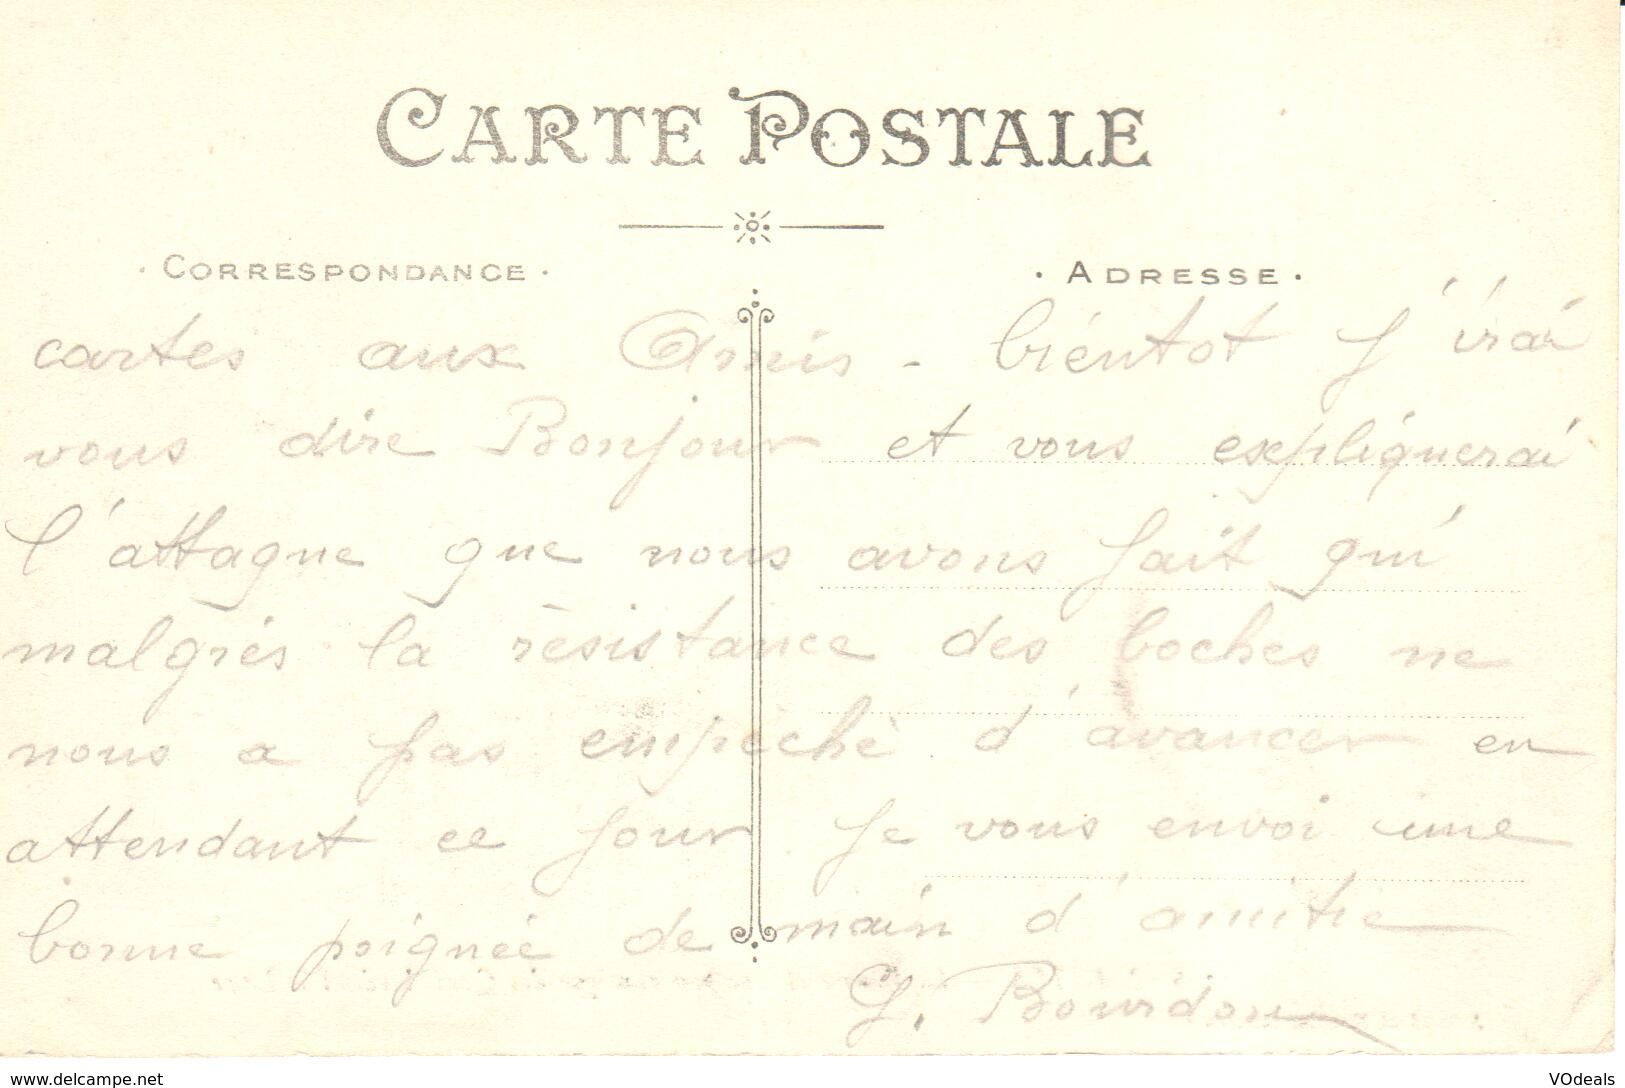 CARTE POSTALE
· CORRESPONDANCE · · ADRESSE ·
cartes aux Amis - bientot j'irai
vous dire Bonjour et vous expliquerai
l'attaque que nous avons fait qui
malgrés la résistance des boches ne
nous a pas empéché d'avancer en
attendant ce jour je vous envoi une
bonne poignée de main d'amitie
G. Bourdon
www.delcampe.net
VOdeals